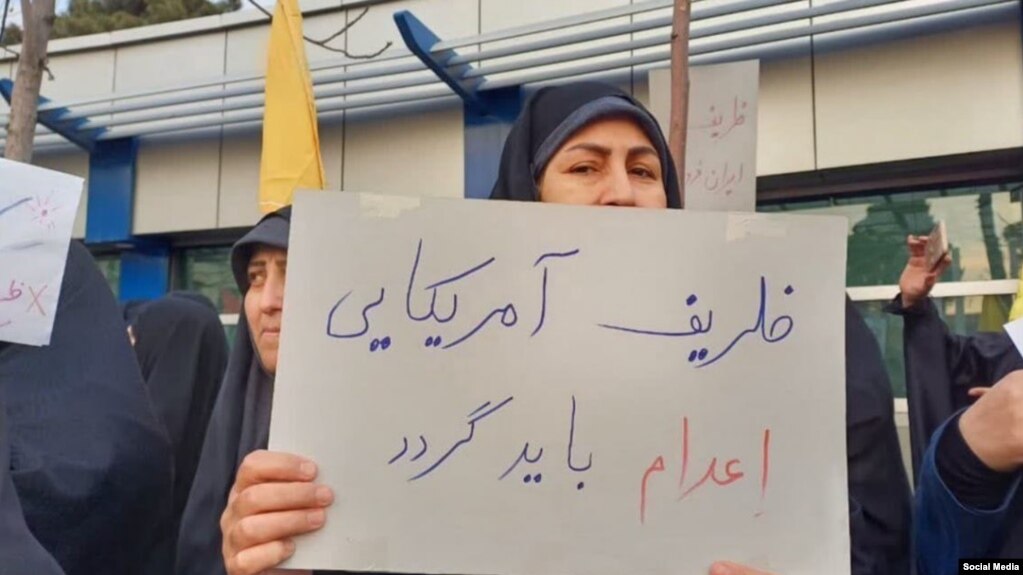 ظریف آمریکایی
اعدام باید گردد
ظریف
ایران
Social Media